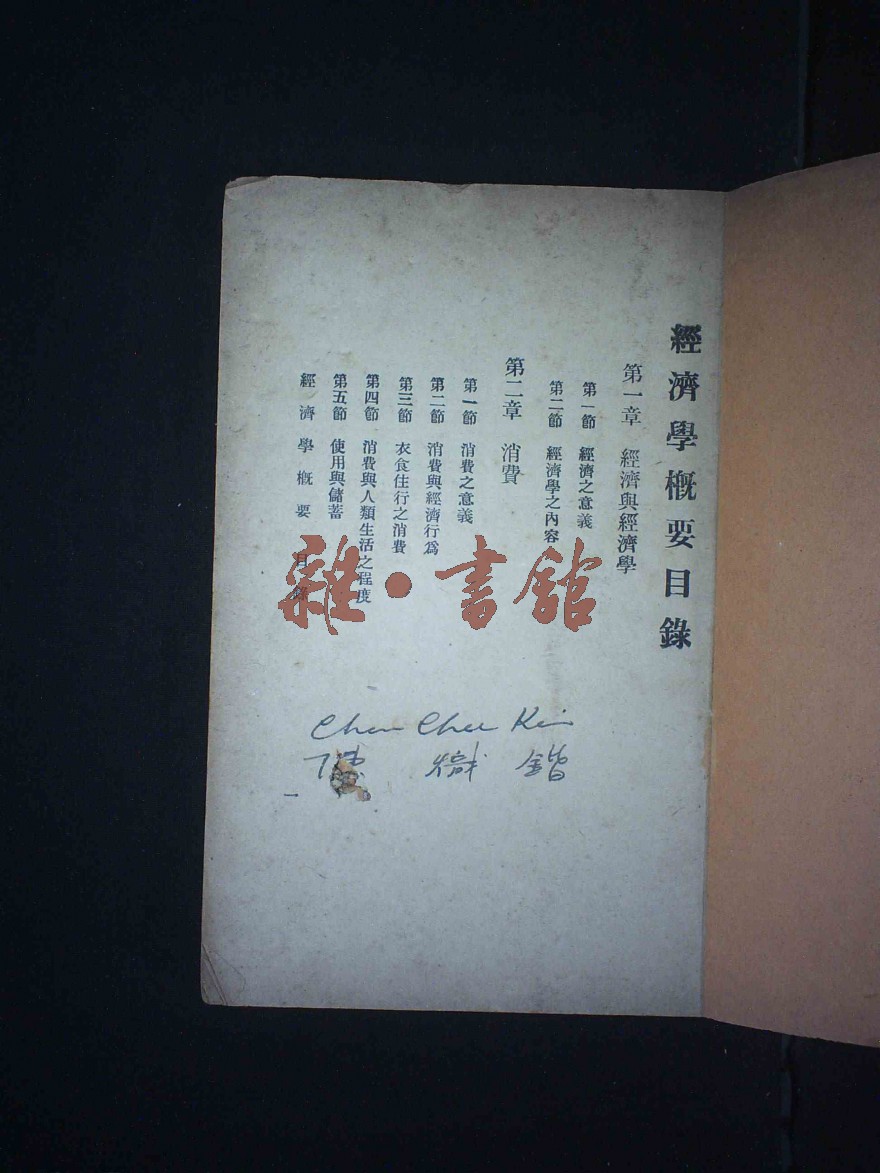 經濟學概要目錄
第一章 經濟與經濟學
第一節 經濟之意義
第二節 經濟學之內容
第二章 消費
第一節 消費之意義
第二節 消費與經濟行為
第三節 衣食住行之消費
第四節 消費與人類生活之程度
第五節 使用與儲蓄
經濟學概要 目錄
一
雜·書館
Chen Chee Kin
陳 鍇